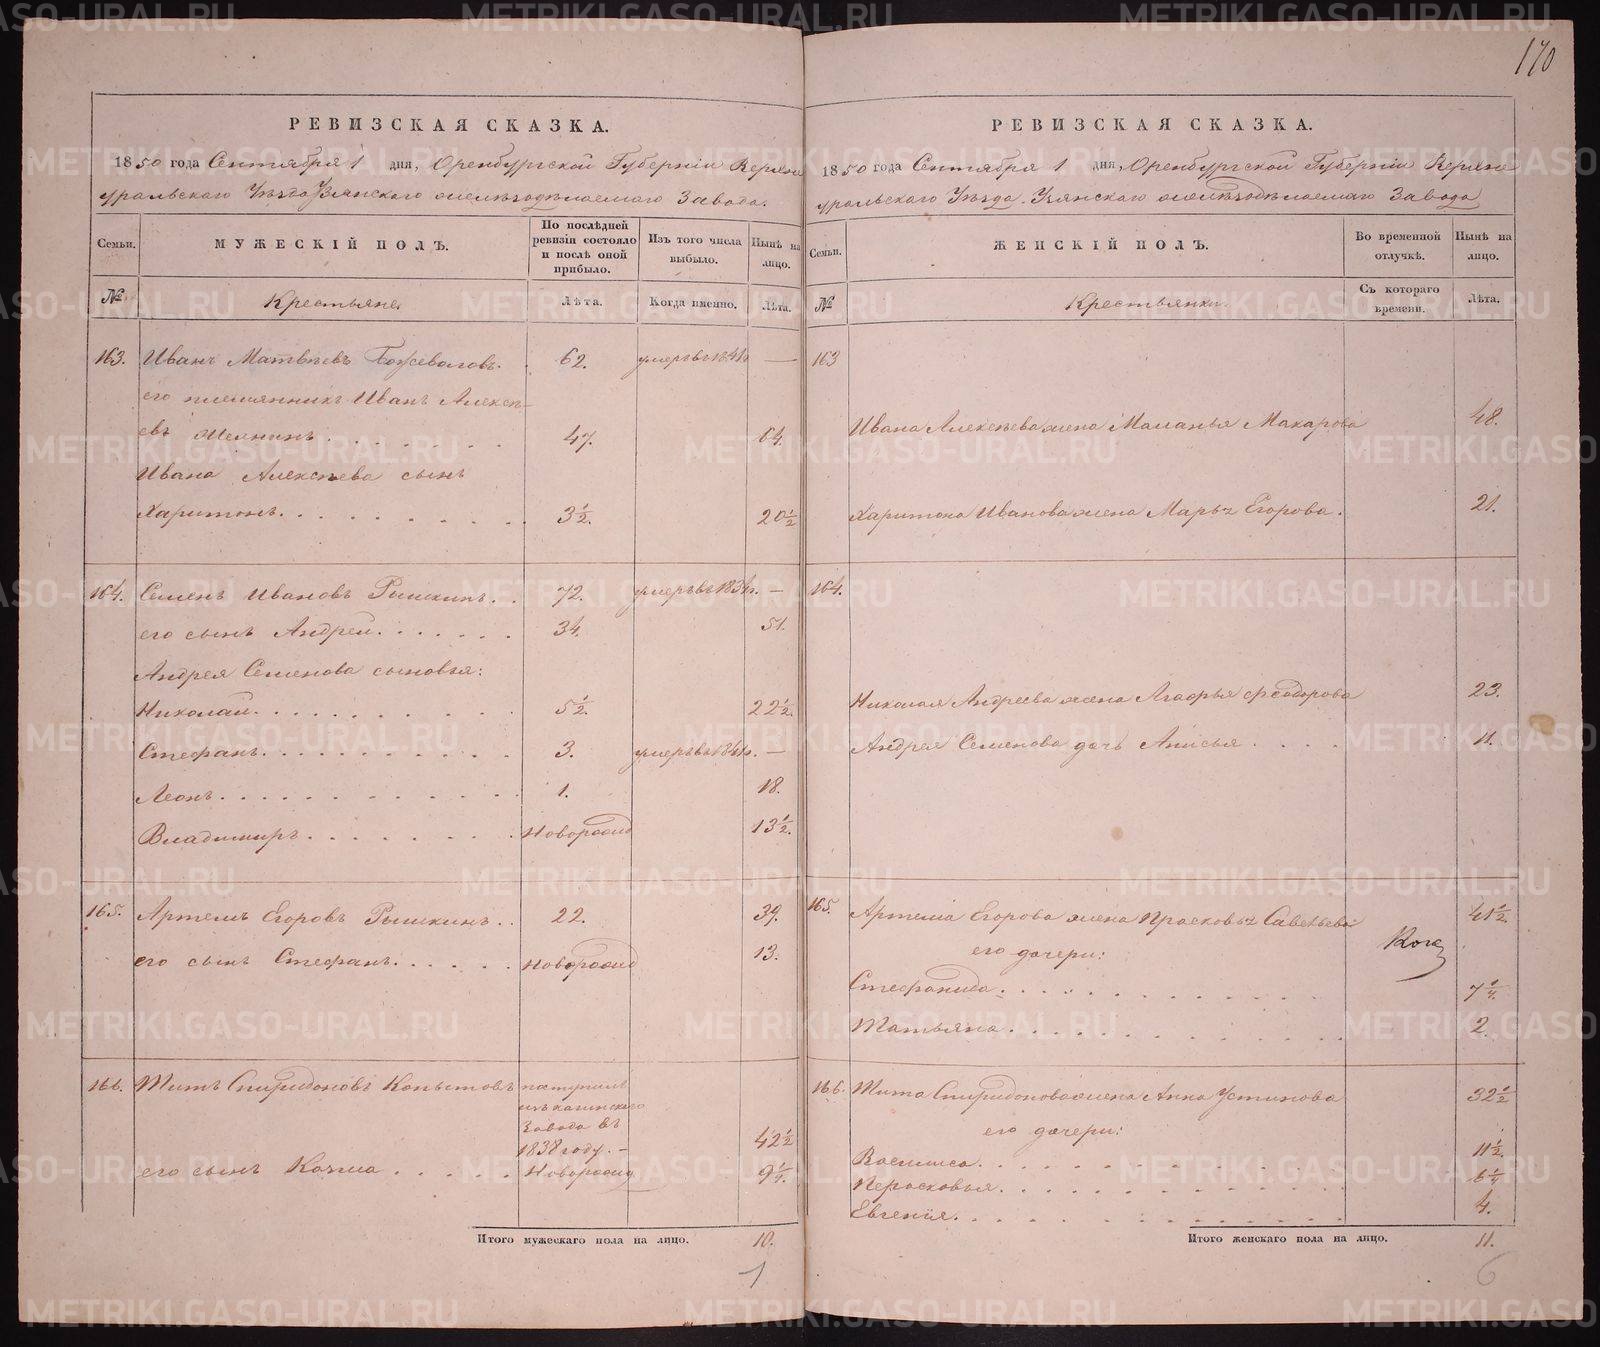 170
РЕВИЗСКАЯ СКАЗКА.
1850 года Сентября 1 дня, Оренбургской Губерніи Верхне
уральскаго Уѣзда Узянскаго желѣзодѣлаемаго Завода.
Семьи.
МУЖЕСКІЙ ПОЛЪ.
По послѣдней ревизіи состояло и послѣ оной прибыло.
Изъ того числа выбыло.
Нынѣ на лицо.
№
Крестьяне.
Лѣта.
Когда именно.
Лѣта.
163. Иванъ Матвѣевъ 62. умеръ въ 1841г. —
его племянникъ Иванъ Алексѣ-
евъ 47. 64.
Ивана Алексѣева сынъ
Харитонъ. 3½. 20½
164. Семенъ Ивановъ Рышкинъ. 72. умеръ въ 1834г. —
его сынъ Андрей. 34. 51.
Андрея Семенова сыновья:
Николай. 5½. 22½.
Стефанъ. 3. умеръ въ 1841г. —
Леонъ. 1. 18.
Владимиръ. Новорожд 13½.
165. Артемъ Егоровъ Рышкинъ. 22. 39.
его сынъ Стефанъ. Новорожд 13.
166. Титъ Спиридоновъ Копытовъ поступилъ
изъ кагинскаго
Завода въ
1838 году. — 42½
его сынъ Козма. Новорожд 9¼.
Итого мужескаго пола на лицо. 10.
1
РЕВИЗСКАЯ СКАЗКА.
1850 года Сентября 1 дня, Оренбургской Губерніи Верхне
уральскаго Уѣзда. Узянскаго желѣзодѣлаемаго Завода
Семьи.
ЖЕНСКІЙ ПОЛЪ.
Во временной отлучкѣ.
Нынѣ на лицо.
№
Крестьянки.
Съ котораго времени.
Лѣта.
163
Ивана Алексѣева жена Маланья Макарова 48.
Харитона Иванова жена Марья Егорова. 21.
164.
Николая Андреева жена Агафья Феодорова 23.
Андрея Семенова дочь Анисья. 11.
165. Артемія Егорова жена Прасковья Савельева 41½.
его дочери:
Стефанида. 7¼.
Татьяна. 2.
166. Тита Спиридонова жена Анна Устинова 32½
его дочери:
Васлиса. 11½.
Перасковья. 6¼
Евгенія. 4.
Итого женскаго пола на лицо. 11.
6
METRIKI.GASO-URAL.RU